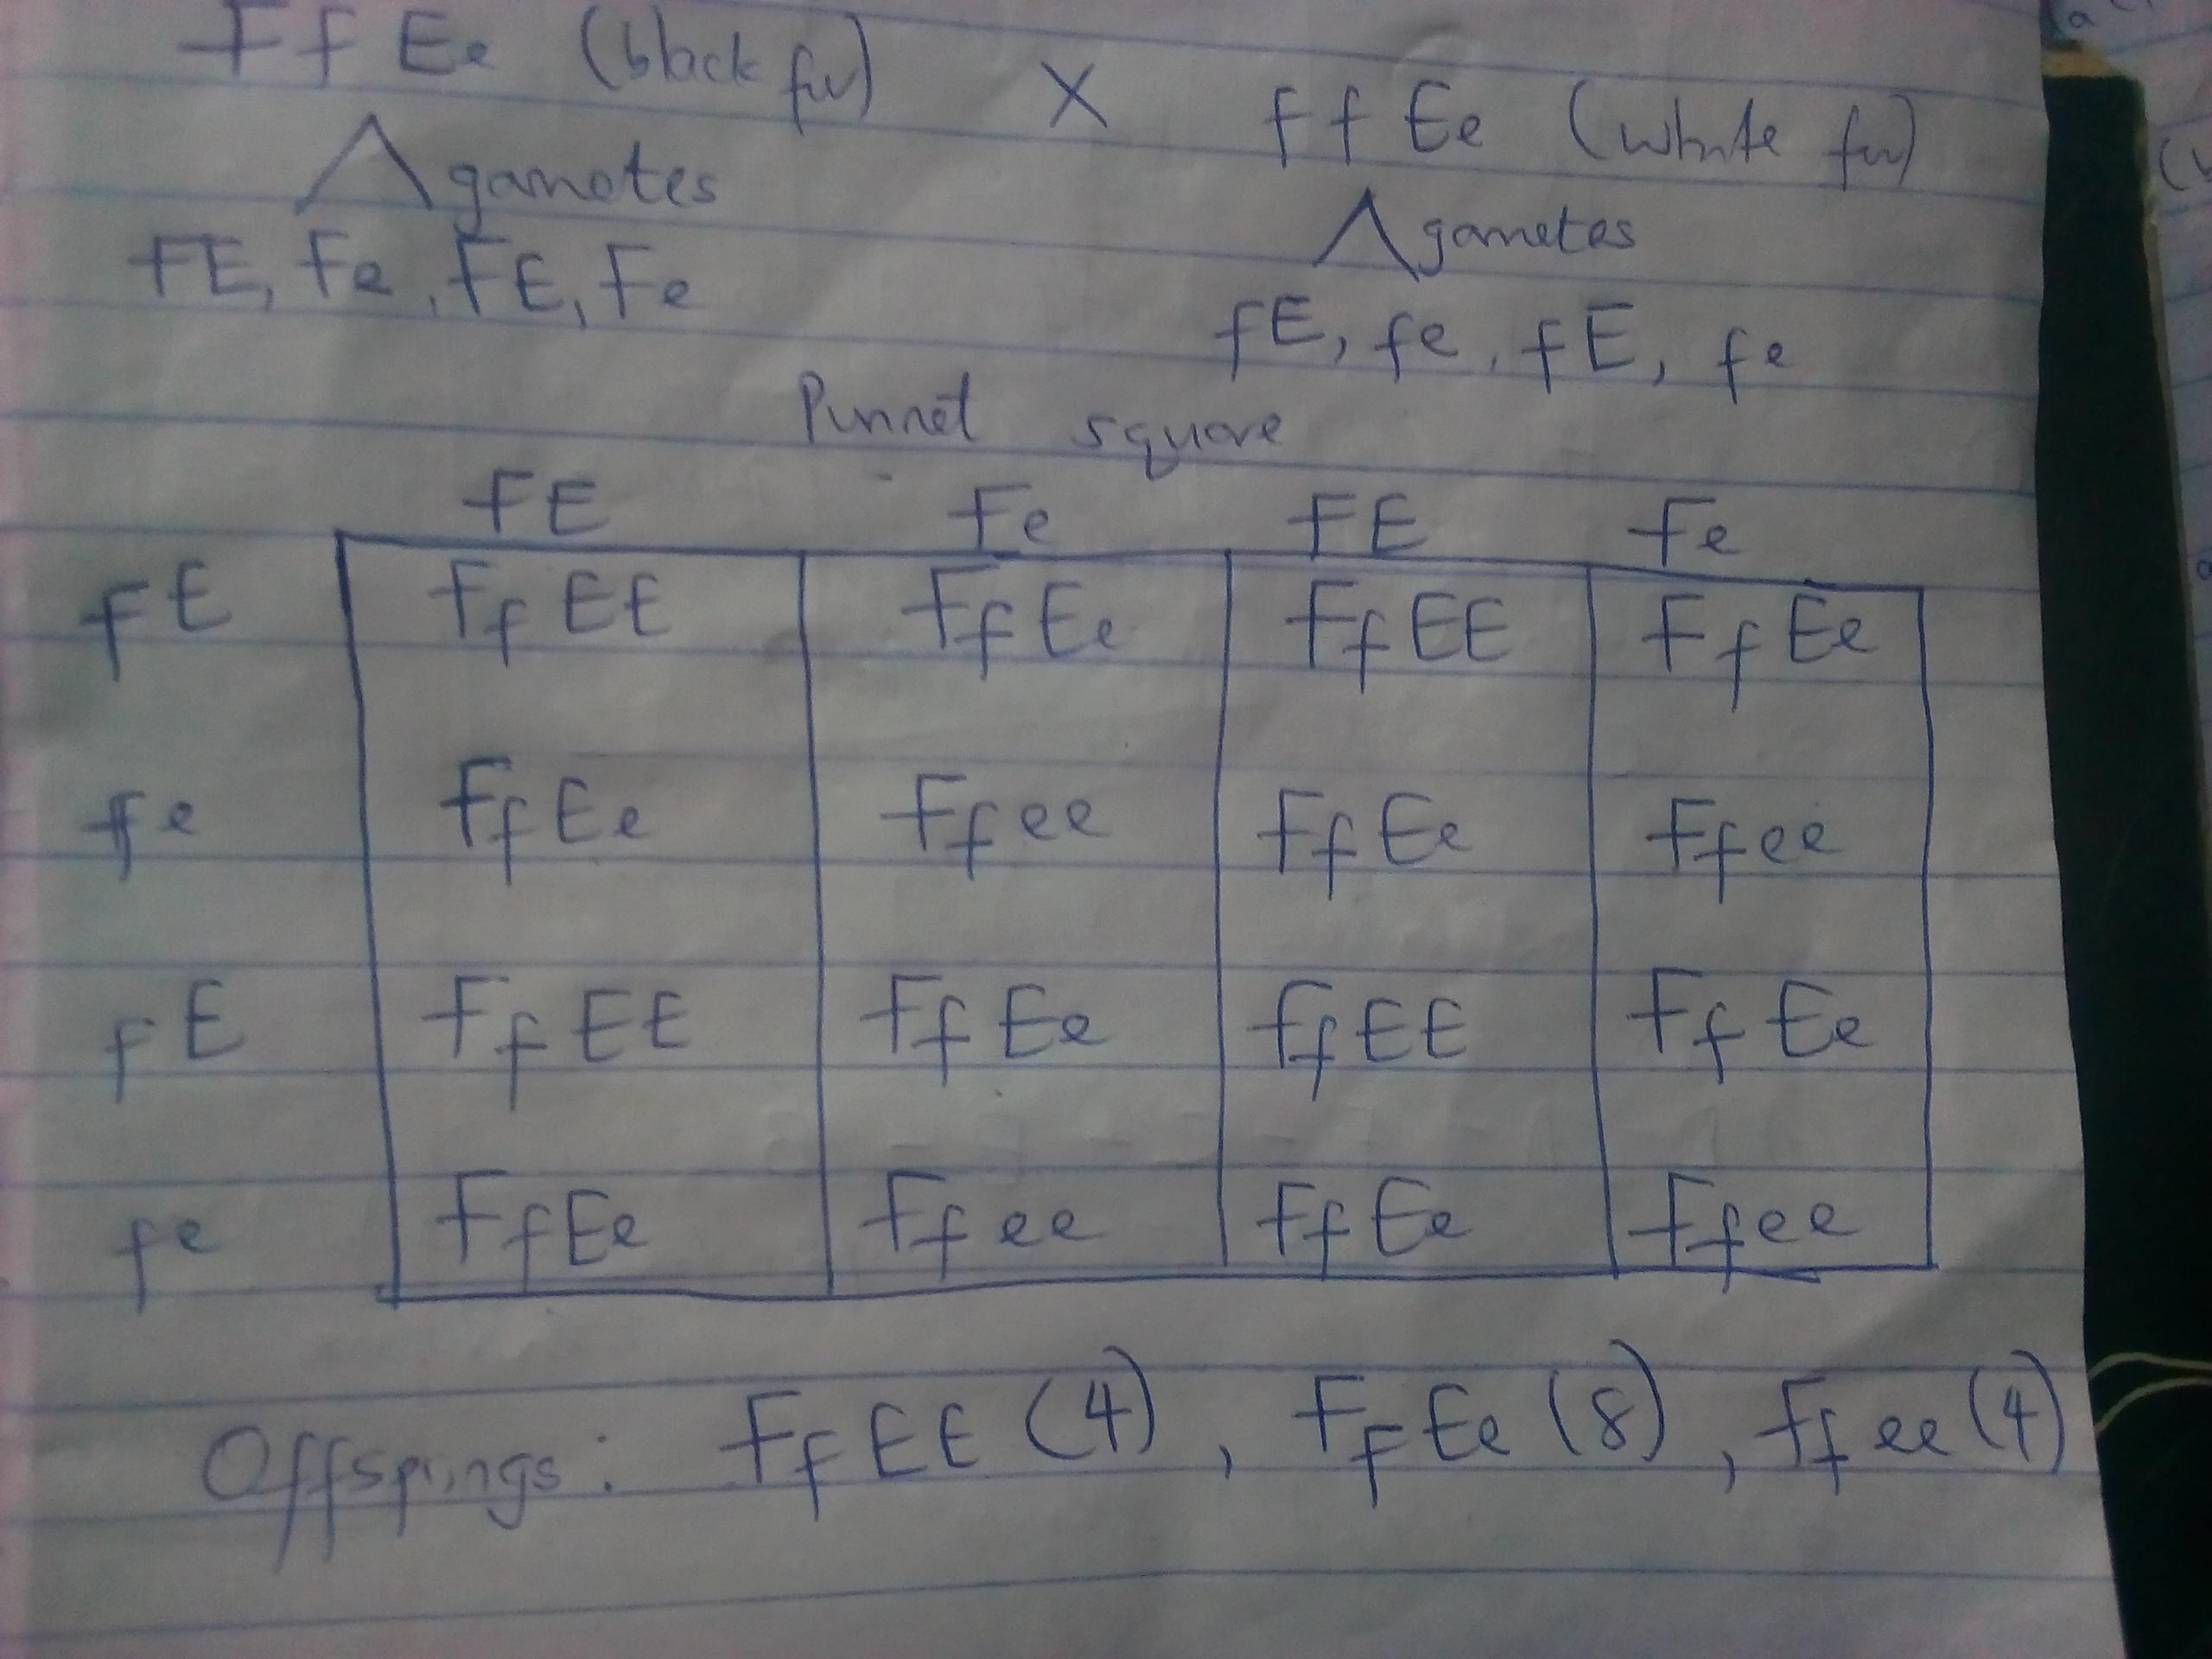 FfEe (black fur) X ffEe (white fur)
gametes gametes
FE, Fe, FE, Fe
fE, fe, fE, fe
Punnet square
FE Fe FE Fe
fE FfEE FfEe FfEE FfEe
fe FfEe Ffee FfEe Ffee
fE FfEE FfEe FfEE FfEe
fe FfEe Ffee FfEe Ffee
Offsprings: FfEE (4), FfEe (8), Ffee (4)